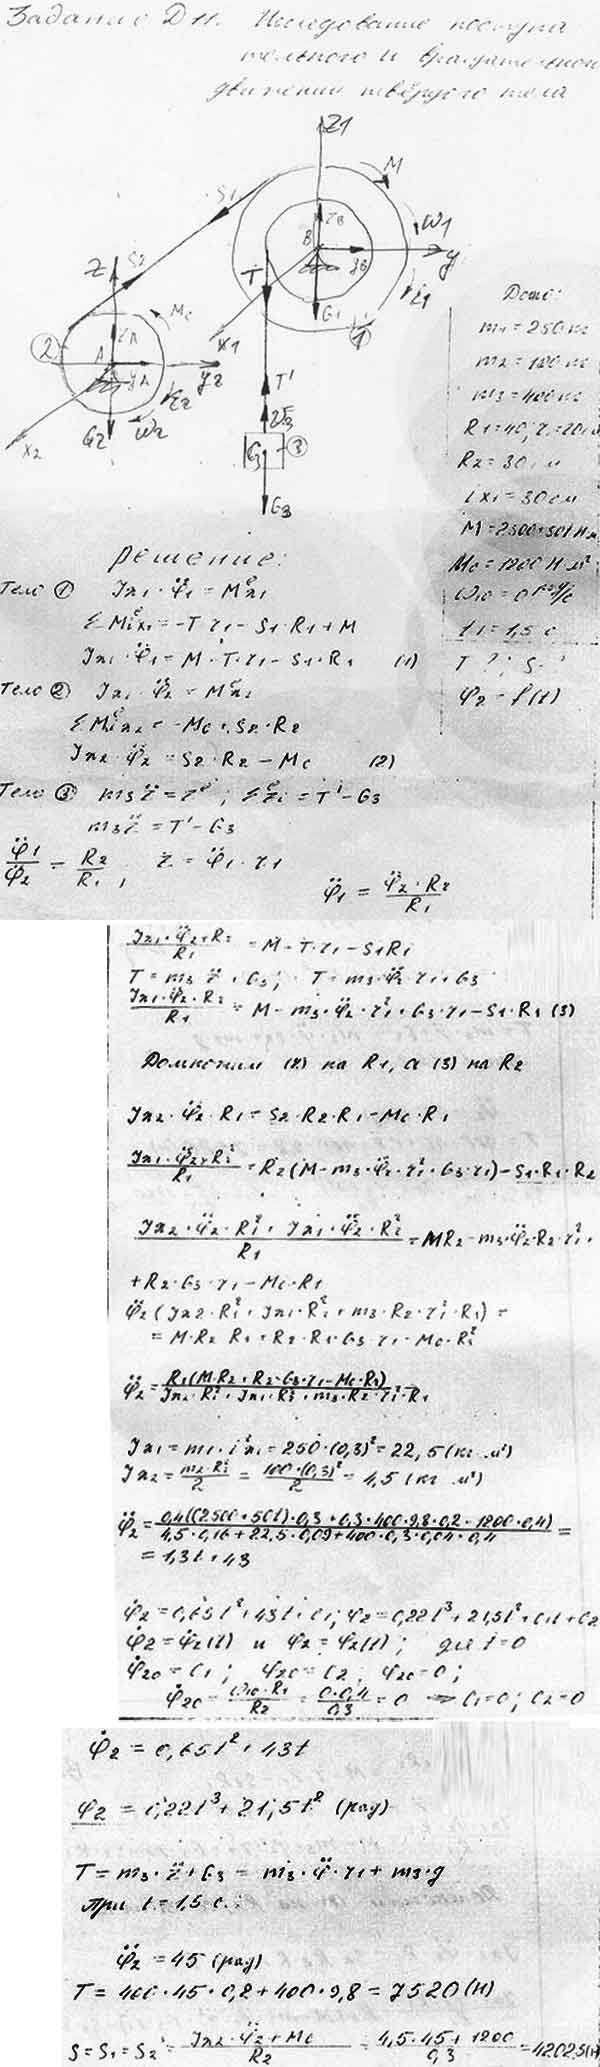 Задание Д 11. Исследование поступа
тельного и вращательного
движения твёрдого тела
Z1
M
S1
ω1
ZB
B
yB
y1
S2
Z
T
ε1
G1
1
Mc
X1
2
ZA
A
yA
y2
ε2
T'
G2
ω2
X2
G3
3
G3
Дано:
m1 = 250 кг
m2 = 100 кг
m3 = 400 кг
R1 = 40; r1 = 20 см
R2 = 30 см
ix1 = 30 см
M = 2500+50t Н.м
Mc = 1200 Н.м
ω10 = 0 рад/с
t1 = 1,5 с
T - ? ; S - ?
φ2 = f(t)
решение:
Тело ① Jx1 · φ̈1 = Mᵉx1
ΣMᵉix1 = -T·r1 - S1·R1 + M
Jx1 · φ̈1 = M - T·r1 - S1·R1 (1)
Тело ② Jx1 · φ̈2 = Mᵉx2
ΣMᵉix2 = -Mc + S2·R2
Jx2 · φ̈2 = S2·R2 - Mc (2)
Тело ③ m3 z̈ = Zᵉ ; ΣZᵉi = T' - G3
m3 z̈ = T' - G3
φ̈1/φ̈2 = R2/R1 ; z̈ = φ̈1 · r1
φ̈1 = φ̈2·R2/R1
Jx1·φ̈2·R2/R1 = M - T·r1 - S1R1
T = m3 z̈ + G3 ; T = m3·φ̈2·r1 + G3
Jx1·φ̈2·R2/R1 = M - m3·φ̈2·r1² + G3·r1 - S1·R1 (3)
Домножим (2) на R1, а (3) на R2
Jx2·φ̈2·R1 = S2·R2·R1 - Mc·R1
Jx1·φ̈2·R2²/R1 = R2(M - m3·φ̈2·r1² + G3·r1) - S1·R1·R2
Jx2·φ̈2·R1² + Jx1·φ̈2·R2²/R1 = MR2 - m3·φ̈2·R2·r1² +
+ R2·G3·r1 - Mc·R1
φ̈2 (Jx2·R1² + Jx1·R2² + m3·R2·r1²·R1) =
= M·R2·R1 + R2·R1·G3·r1 - Mc·R1²
φ̈2 = R1(M·R2 + R2·G3·r1 - Mc·R1)/Jx2·R1² + Jx1·R2² + m3·R2·r1²·R1
Jx1 = m1·i²x1 = 250·(0,3)² = 22,5 (кг м²)
Jx2 = m2·R2²/2 = 100·(0,3)²/2 = 4,5 (кг м²)
φ̈2 = 0,4((2500+50t)·0,3 + 0,3·400·9,8·0,2 - 1200·0,4)/4,5·0,16+22,5·0,09+400·0,3·0,04·0,4 =
= 1,3t + 43
φ̇2 = 0,65t² + 43t + C1; φ2 = 0,22t³ + 21,5t² + C1t + C2
φ̇2 = φ̇2(t) и φ2 = φ2(t) ; для t=0
φ̇20 = C1 ; φ20 = C2 ; φ20 = 0 ;
φ̇20 = ω10·R1/R2 = 0·0,4/0,3 = 0 ⇒ C1=0; C2=0
φ̇2 = 0,65t² + 43t
φ2 = 0,22t³ + 21,5t² (рад)
T = m3·z̈ + G3 = m3·φ̈·r1 + m3·g
При t = 1,5 с.:
φ̈2 = 45 (рад)
T = 400·45·0,2 + 400·9,8 = 7520 (Н)
S = S1 = S2 = Jx2·φ̈2 + Mc/R2 = 4,5·45+1200/0,3 = 4202,5(Н)